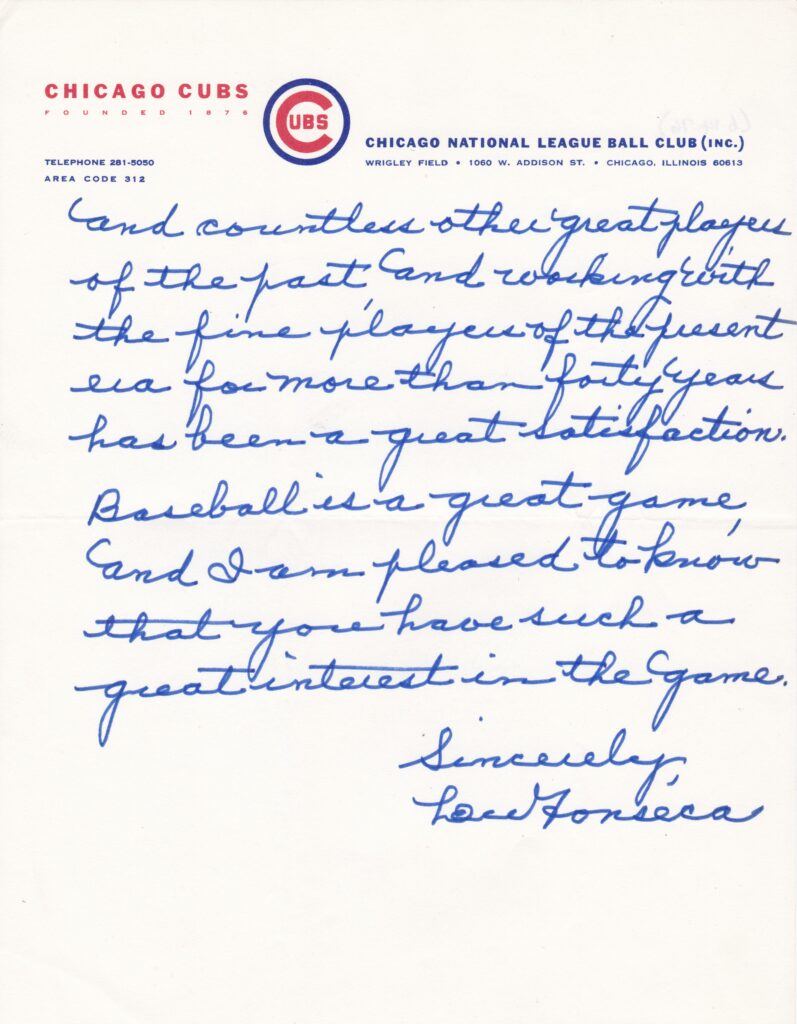 CHICAGO CUBS
FOUNDED 1876
CUBS
CHICAGO NATIONAL LEAGUE BALL CLUB (INC.)
TELEPHONE 281-5050
WRIGLEY FIELD • 1060 W. ADDISON ST. • CHICAGO, ILLINOIS 60613
AREA CODE 312
and countless other great players
of the past, and working with
the fine players of the present
era for more than forty years
has been a great satisfaction.
Baseball is a great game,
and I am pleased to know
that you have such a
great interest in the game.
Sincerely,
Lew Fonseca